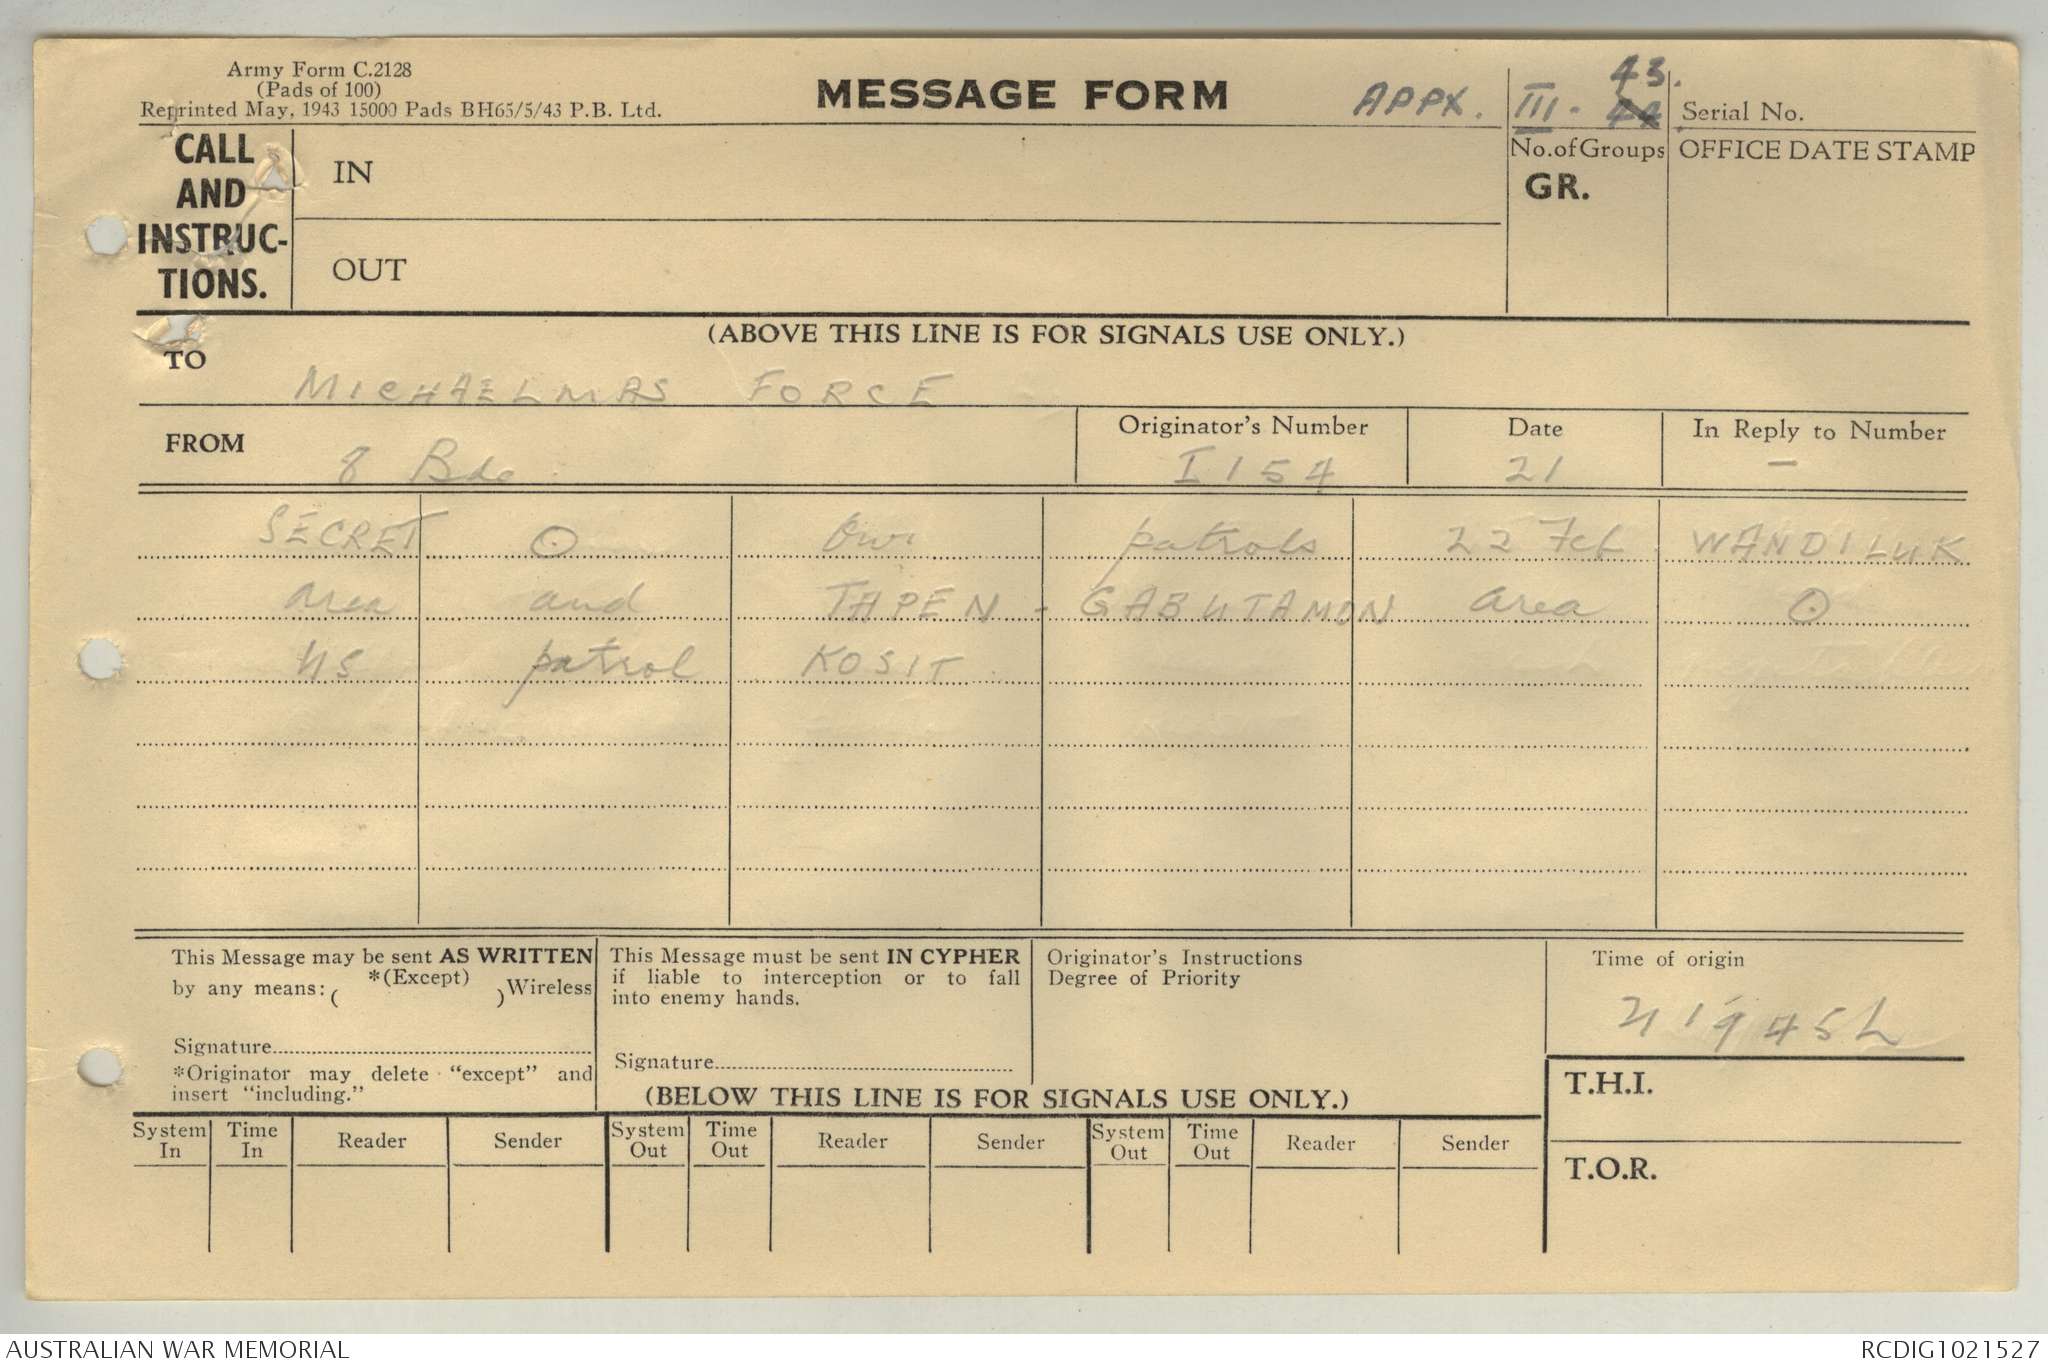 Army Form C.2128
(Pads of 100)
Reprinted May, 1943 15000 Pads BH65/5/43 P.B. Ltd.
MESSAGE FORM
APPX. III - 43.
44.
Serial No.
CALL AND INSTRUC-TIONS.
IN
OUT
No. of Groups
GR.
OFFICE DATE STAMP
(ABOVE THIS LINE IS FOR SIGNALS USE ONLY.)
TO
MICHAELMAS FORCE
FROM
8 Bde
Originator's Number
I 154
Date
21
In Reply to Number
-
SECRET O Own patrols 22 Feb WANDILUK
area and TAPEN - GABUTAMON area O
US patrol KOSIT
This Message may be sent AS WRITTEN
by any means: ( *(Except) ) Wireless
Signature
*Originator may delete "except" and
insert "including."
This Message must be sent IN CYPHER
if liable to interception or to fall
into enemy hands.
Signature
Originator's Instructions
Degree of Priority
Time of origin
211945L
(BELOW THIS LINE IS FOR SIGNALS USE ONLY.)
T.H.I.
T.O.R.
System In Time In Reader Sender System Out Time Out Reader Sender System Out Time Out Reader Sender
AUSTRALIAN WAR MEMORIAL
RCDIG1021527